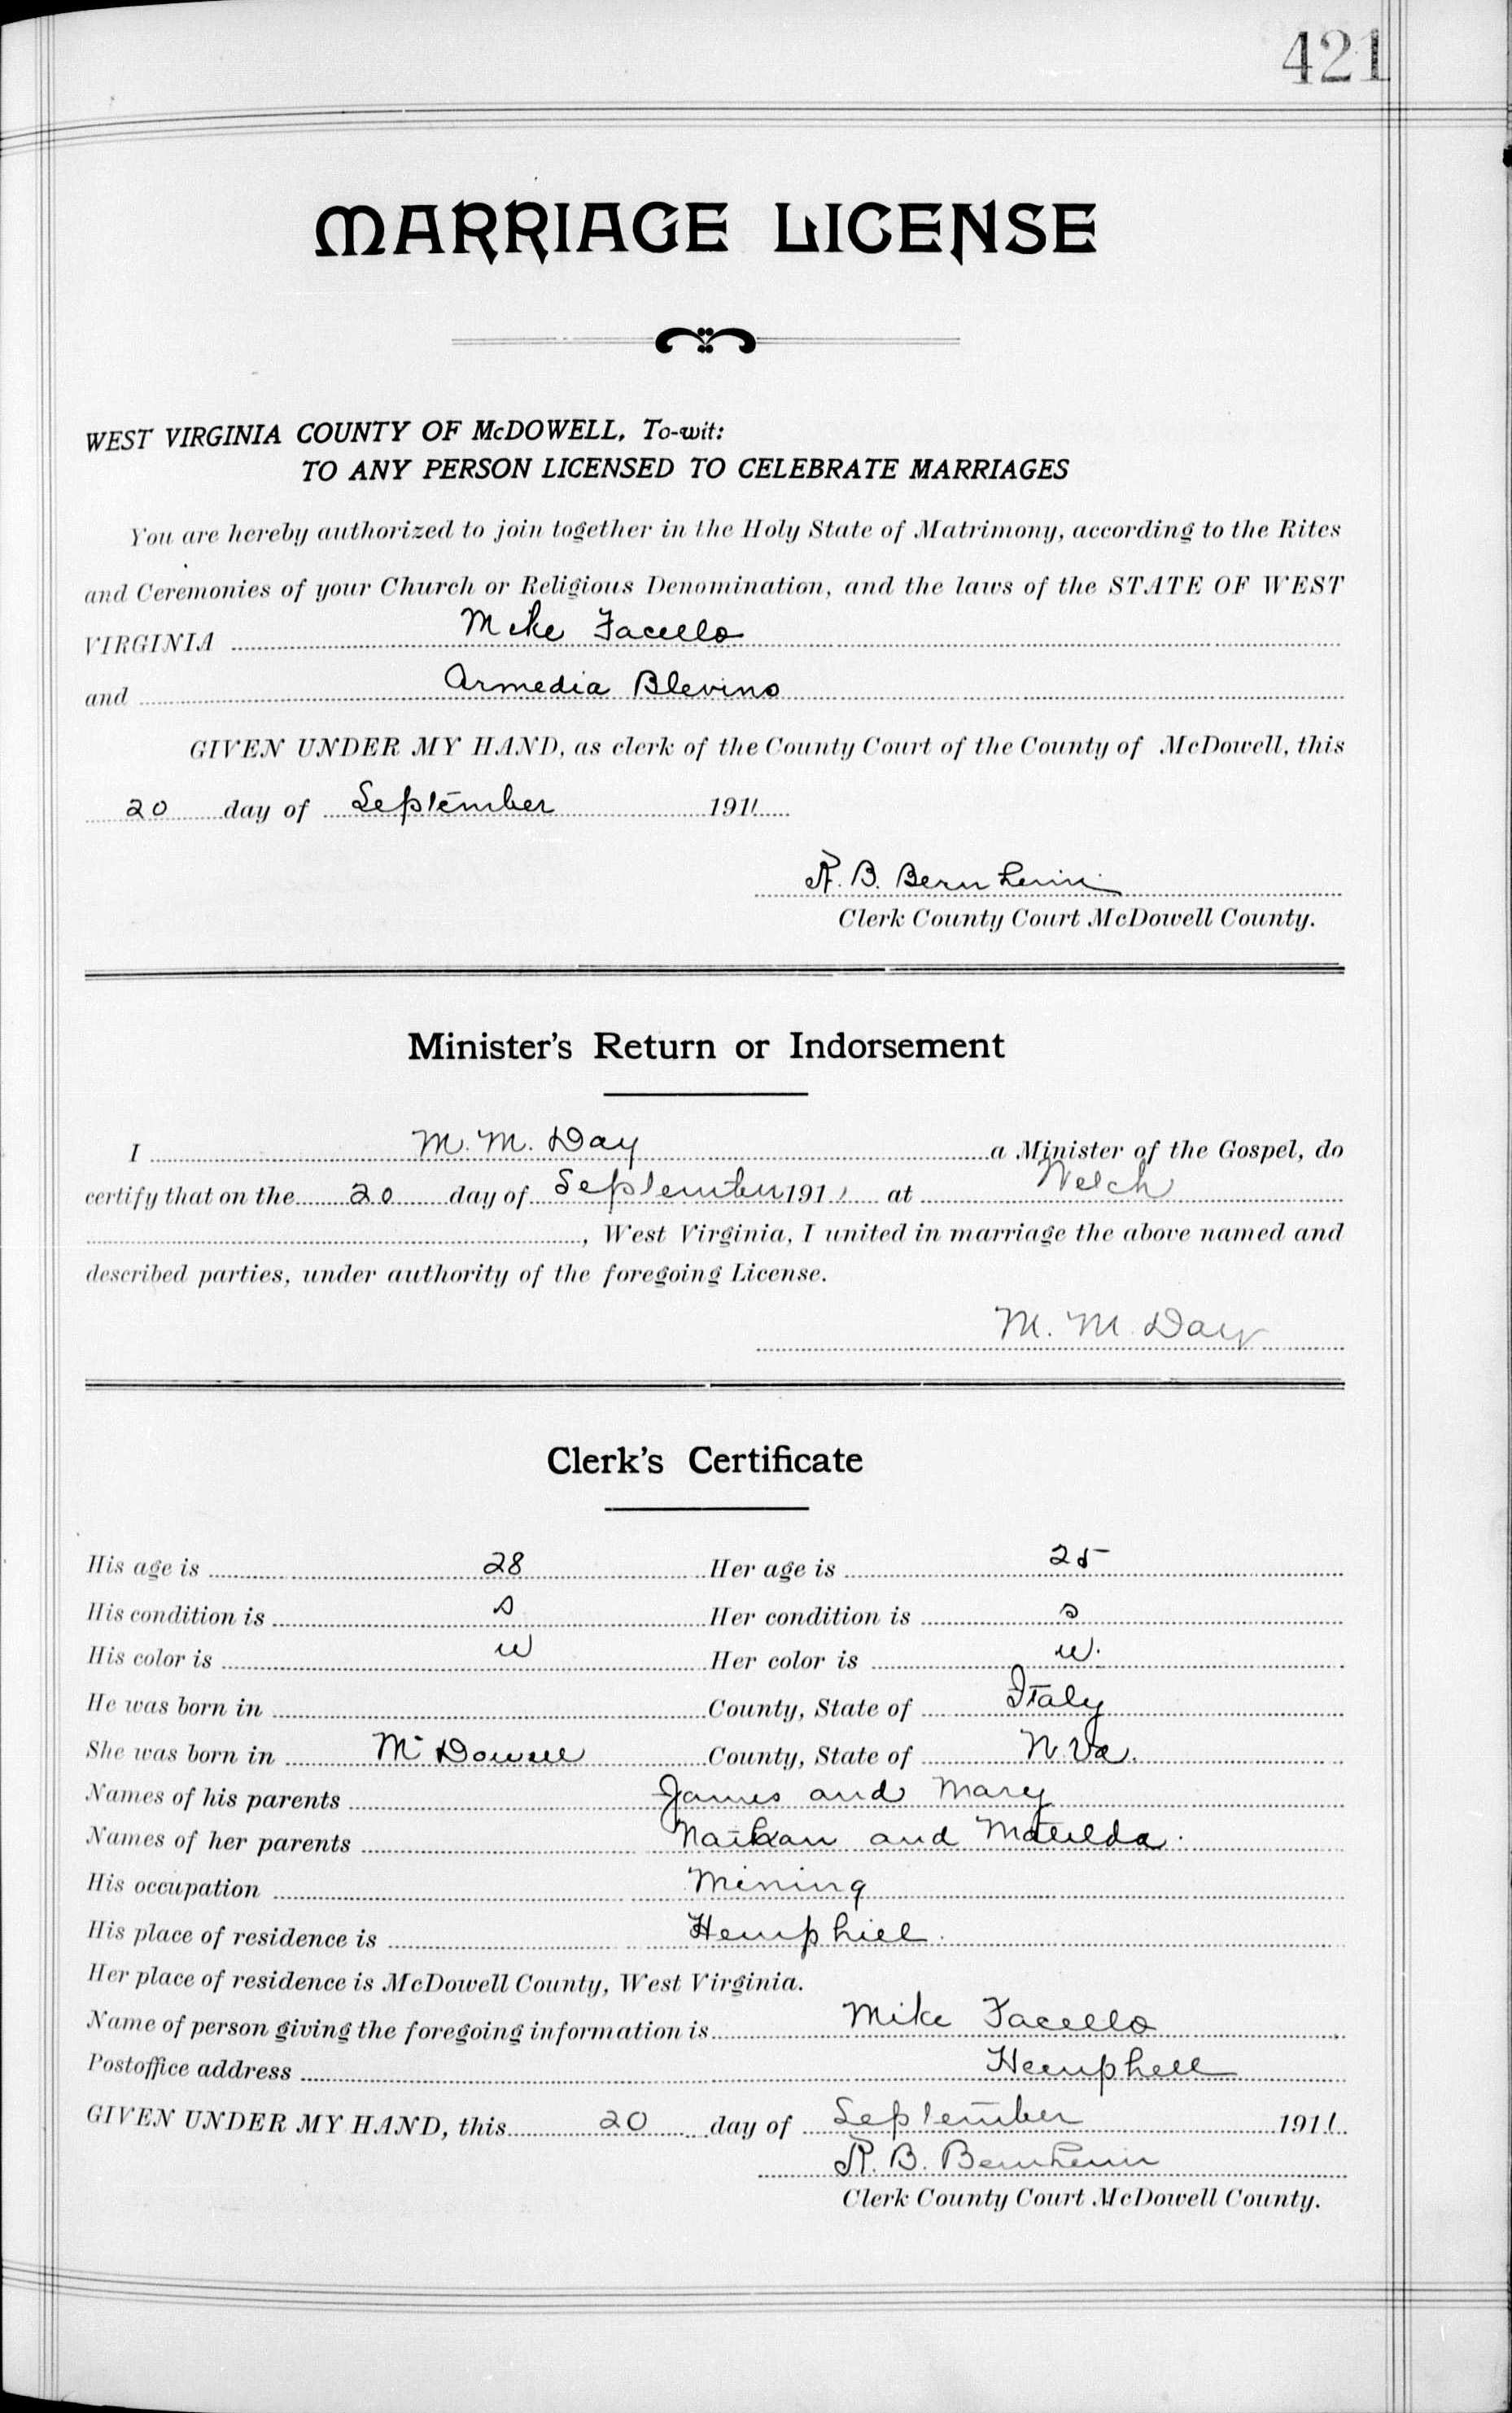 421
MARRIAGE LICENSE
WEST VIRGINIA COUNTY OF McDOWELL, To-wit:
TO ANY PERSON LICENSED TO CELEBRATE MARRIAGES
You are hereby authorized to join together in the Holy State of Matrimony, according to the Rites
and Ceremonies of your Church or Religious Denomination, and the laws of the STATE OF WEST
VIRGINIA Mike Facello
and Armedia Blevins
GIVEN UNDER MY HAND, as clerk of the County Court of the County of McDowell, this
20 day of September 1911
R. B. Bernheim
Clerk County Court McDowell County.
Minister's Return or Indorsement
I M. M. Day a Minister of the Gospel, do
certify that on the 20 day of September 1911 at Welch
, West Virginia, I united in marriage the above named and
described parties, under authority of the foregoing License.
M. M. Day
Clerk's Certificate
His age is 28 Her age is 25
His condition is s Her condition is s
His color is w Her color is w.
He was born in County, State of Italy
She was born in McDowell County, State of W. Va.
Names of his parents James and Mary
Names of her parents Nathan and Matilda.
His occupation Mining
His place of residence is Hemphill.
Her place of residence is McDowell County, West Virginia.
Name of person giving the foregoing information is Mike Facello
Postoffice address Hemphill
GIVEN UNDER MY HAND, this 20 day of September 1911.
R. B. Bernheim
Clerk County Court McDowell County.